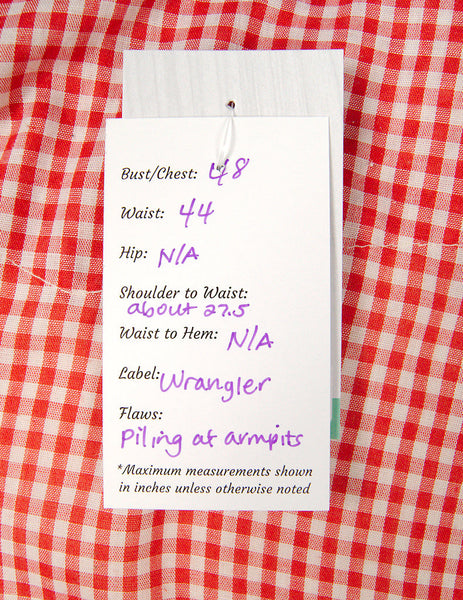 Bust/Chest: 48
Waist: 44
Hip: N/A
Shoulder to Waist:
about 27.5
Waist to Hem: N/A
Label: Wrangler
Flaws:
Piling at armpits
*Maximum measurements shown
in inches unless otherwise noted